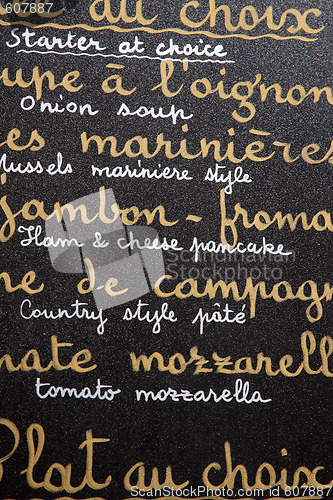 au choix
Starter at choice
upe à l'oignon
Onion soup
es marinières
Mussels mariniere style
jambon - froma
Ham & cheese pancake
ne de campagn
Country style pâté
ate mozzarell
tomato mozzarella
Plat au choix
© 607887
© 607887
© 607887
© 607887